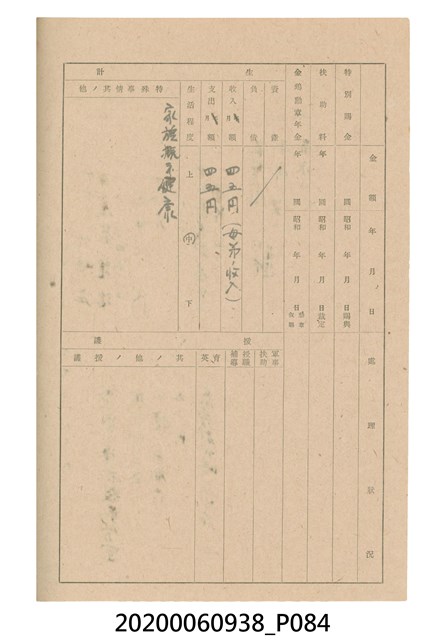 金額 年月日 處理狀況
特別賜金 圓 昭和 年 月 日賜與
扶助料 年 圓 昭和 年 月 日裁定
金鵄勳章年金 年 圓 昭和 年 月 日
生計
資産
負債
收入月額 四五円(母、弟ノ收入)
支出月額 四五円
生活程度 上 中 下
特殊事情其ノ他 家族概ネ健康
援護
軍事扶助
授職補導
育英
其ノ他ノ援護
20200060938_P084